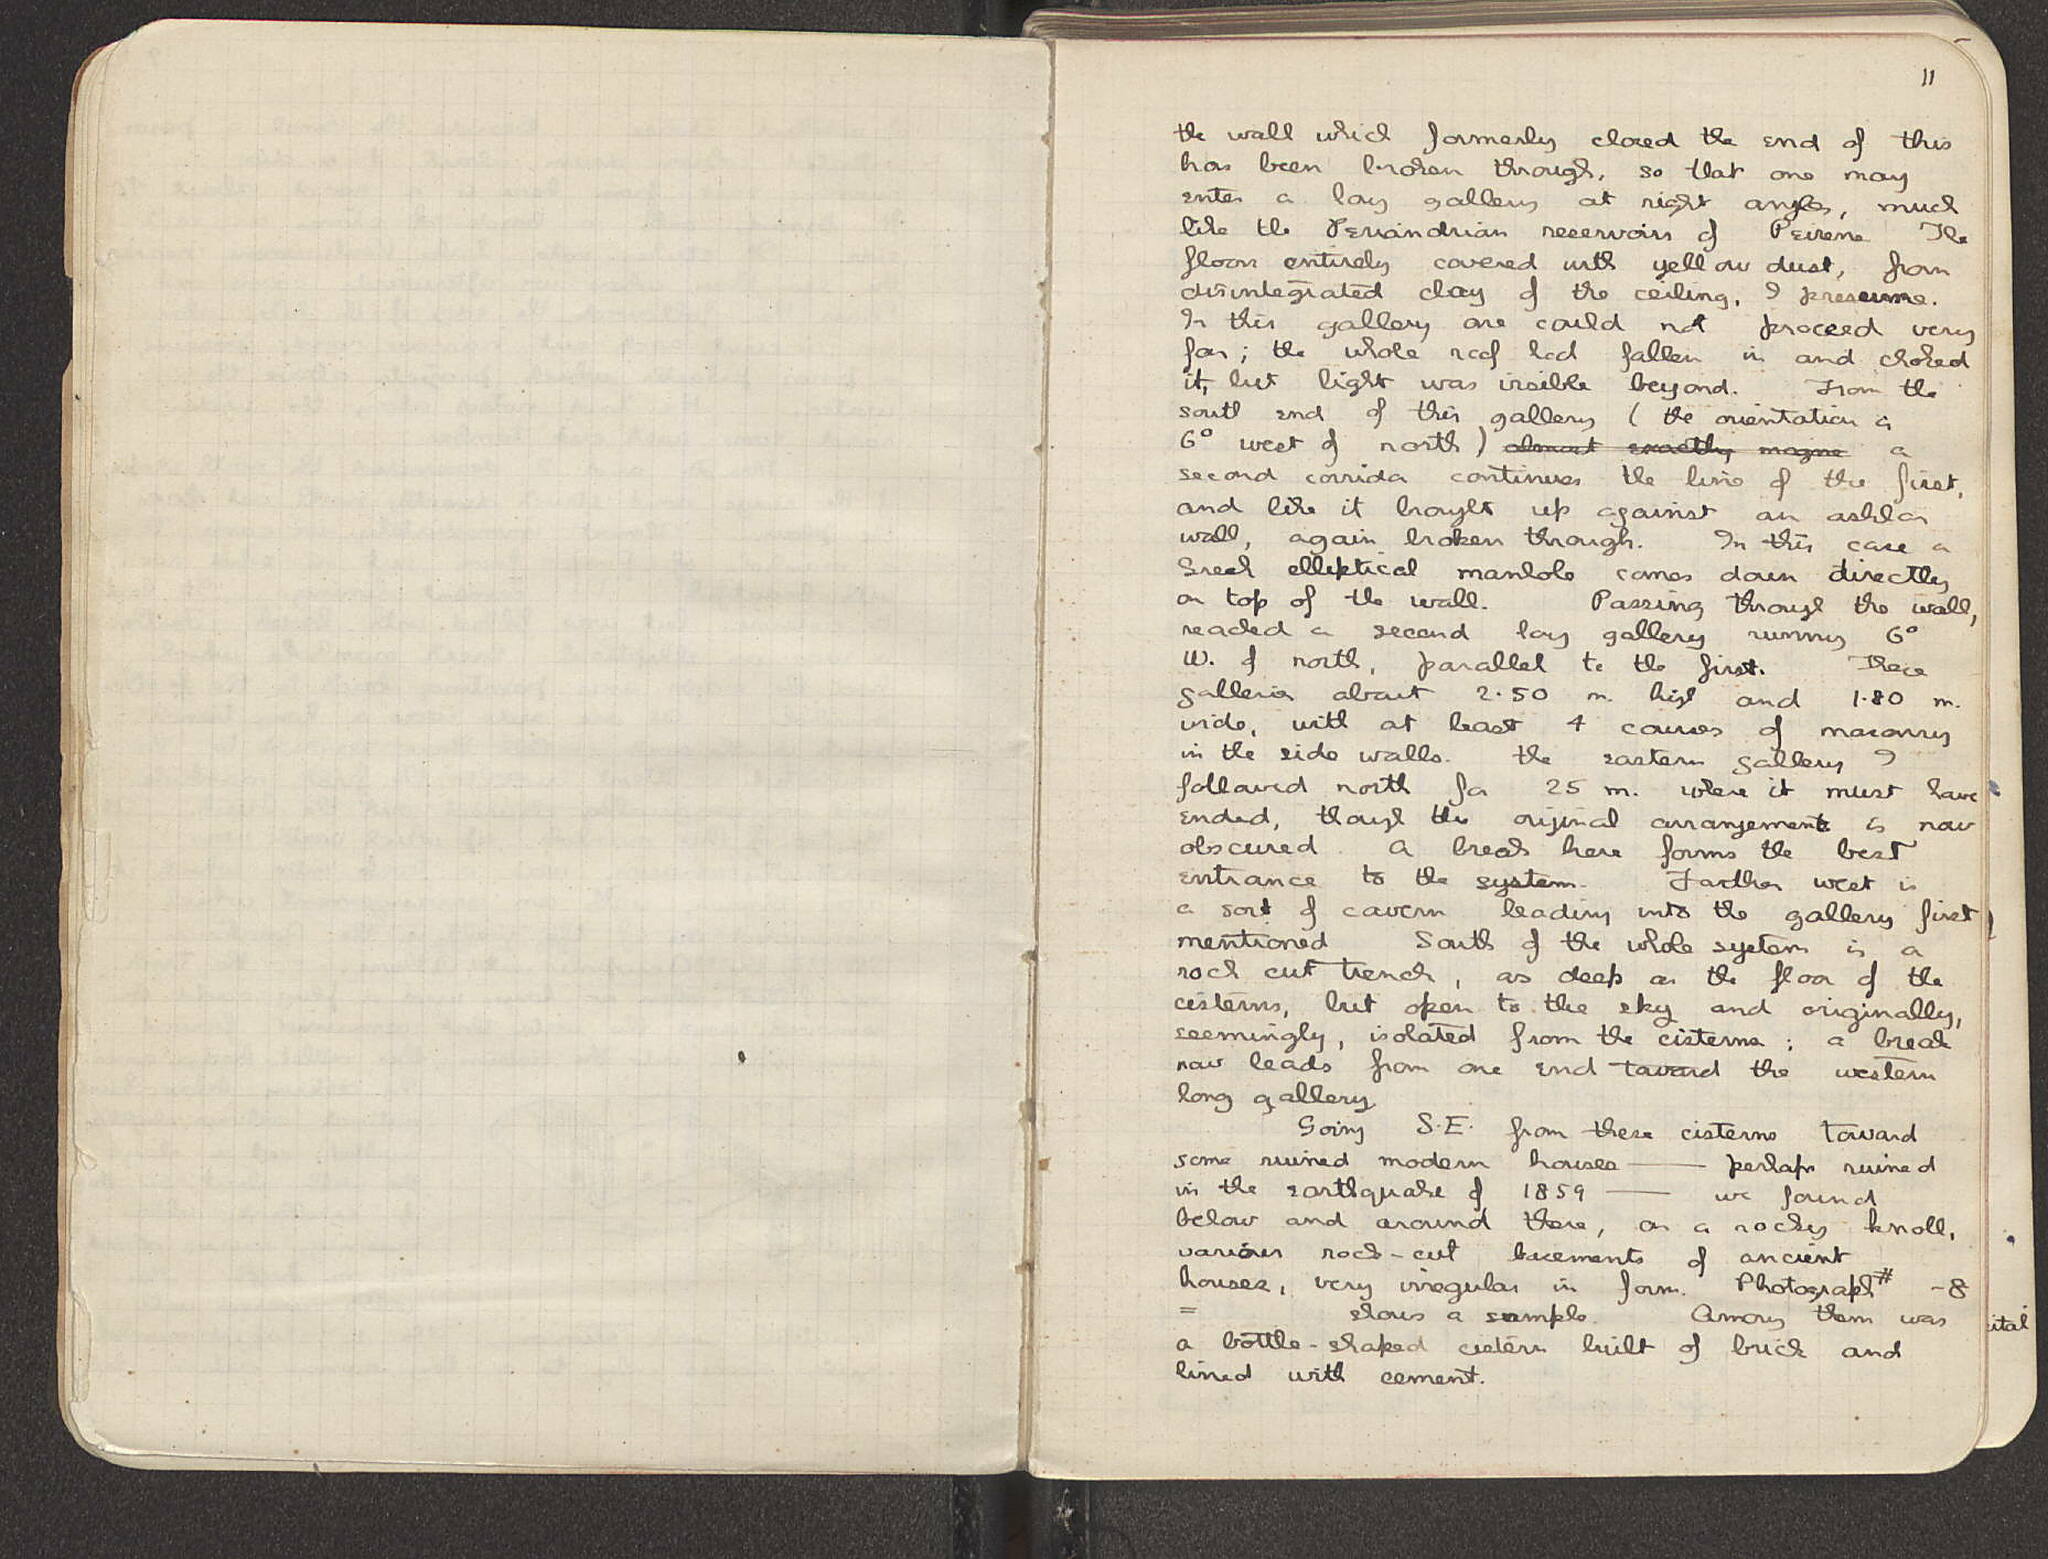 11
the wall which formerly closed the end of this
has been broken through, so that one may
enter a long gallery at right angles, much
like the Periandrian reservoirs of Peirene The
floor entirely covered with yellow dust, from
disintegrated clay of the ceiling, I presume.
In this gallery one could not proceed very
far; the whole roof had fallen in and choked
it, but light was visible beyond. From the
south end of this gallery (the orientation is
6° west of north) almost exactly a
second corridor continues the line of the first,
and like it brought up against an ashlar
wall, again broken through. In this case a
Greek elliptical manhole comes down directly
on top of the wall. Passing through the wall,
reached a second long gallery running 6°
W. of north, parallel to the first. These
galleries about 2.50 m. high and 1.80 m.
wide, with at least 4 courses of masonry
in the side walls. The eastern gallery I
followed north for 25 m. where it must have
ended, though the original arrangement is now
obscured. A break here forms the best
entrance to the system. Farther west is
a sort of cavern leading into the gallery first
mentioned South of the whole system is a
rock cut trench, as deep as the floor of the
cisterns, but open to the sky and originally,
seemingly, isolated from the cisterns; a break
now leads from one end toward the western
long gallery
Going S.E. from these cisterns toward
some ruined modern houses — perhaps ruined
in the earthquake of 1859 — we found
below and around these, on a rocky knoll,
various rock-cut basements of ancient
houses, very irregular in form. Photograph # -8
= shows a sample. Among them was
a bottle-shaped cistern built of brick and
lined with cement.